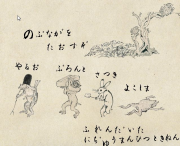 のぶながを
たおすぞ
やるお
ぶろんと
さつき
よこしま
ふれんだいた
にじゅうまんひつときねん